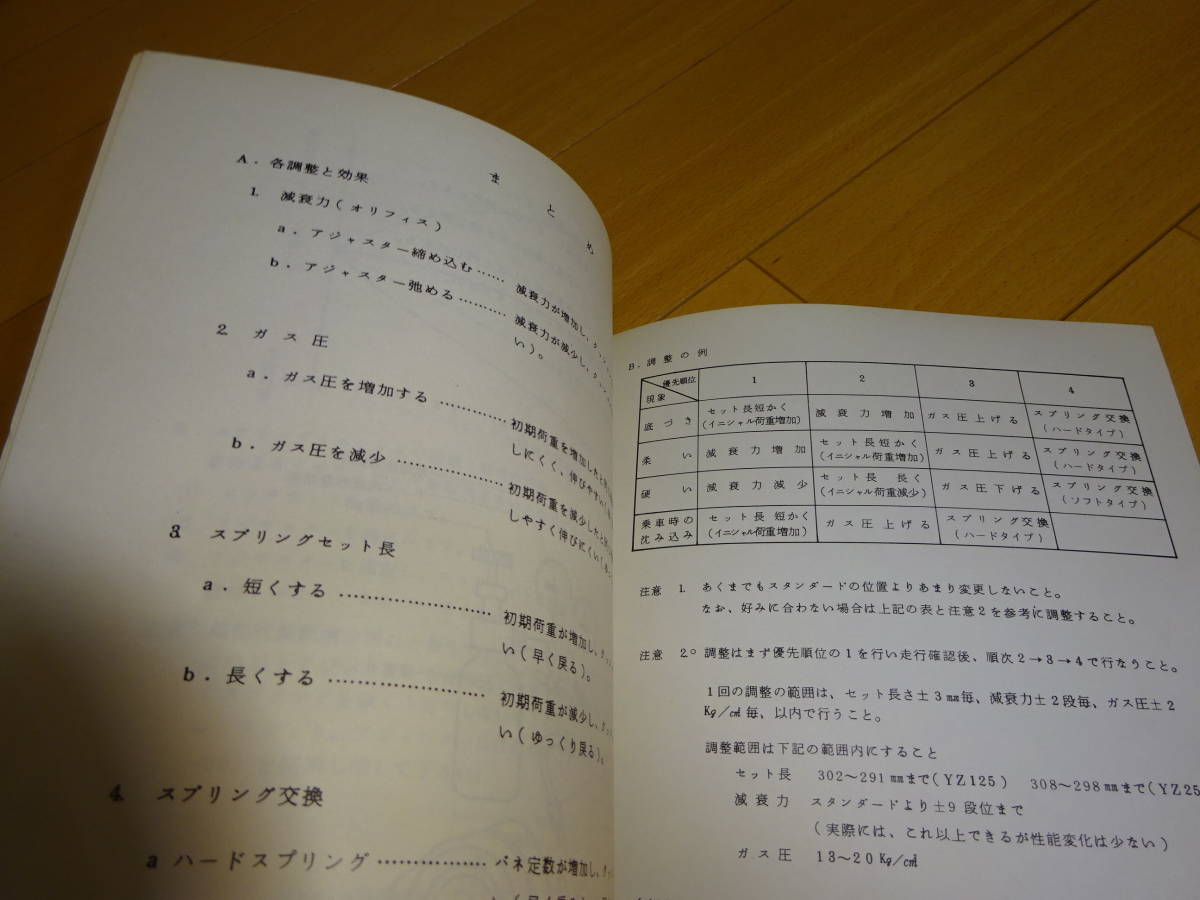 まとめ
A. 各調整と効果
1. 減衰力(オリフィス)
a. アジャスター締め込む……減衰力が増加し、
b. アジャスター弛める…………減衰力が減少し、
い)。
2. ガス圧
a. ガス圧を増加する…………初期荷重を増加した
しにくく、伸びやすい
b. ガス圧を減少…………初期荷重を減少した
しやすく伸びにくい
3. スプリングセット長
a. 短くする…………………初期荷重が増加し、
い(早く戻る)。
b. 長くする…………………初期荷重が減少し、
い(ゆっくり戻る)。
4. スプリング交換
a ハードスプリング……………バネ定数が増加し、
B. 調整の例
優先順位 1 2 3 4
現象
底づき セット長短かく(イニシャル荷重増加) 減衰力増加 ガス圧上げる スプリング交換(ハードタイプ)
柔い 減衰力増加 セット長短かく(イニシャル荷重増加) ガス圧上げる スプリング交換(ハードタイプ)
硬い 減衰力減少 セット長長く(イニシャル荷重減少) ガス圧下げる スプリング交換(ソフトタイプ)
乗車時の沈み込み セット長短かく(イニシャル荷重増加) ガス圧上げる スプリング交換(ハードタイプ)
注意 1. あくまでもスタンダードの位置よりあまり変更しないこと。
なお、好みに合わない場合は上記の表と注意2を参考に調整すること。
注意 2。調整はまず優先順位の1を行い走行確認後、順次2→3→4で行なうこと。
1回の調整の範囲は、セット長さ±3㎜毎、減衰力±2段毎、ガス圧±2
Kg/㎠毎、以内で行うこと。
調整範囲は下記の範囲内にすること
セット長 302〜291㎜まで(YZ125) 308〜298㎜まで(YZ25
減衰力 スタンダードより±9段位まで
(実際には、これ以上できるが性能変化は少ない)
ガス圧 13〜20Kg/㎠